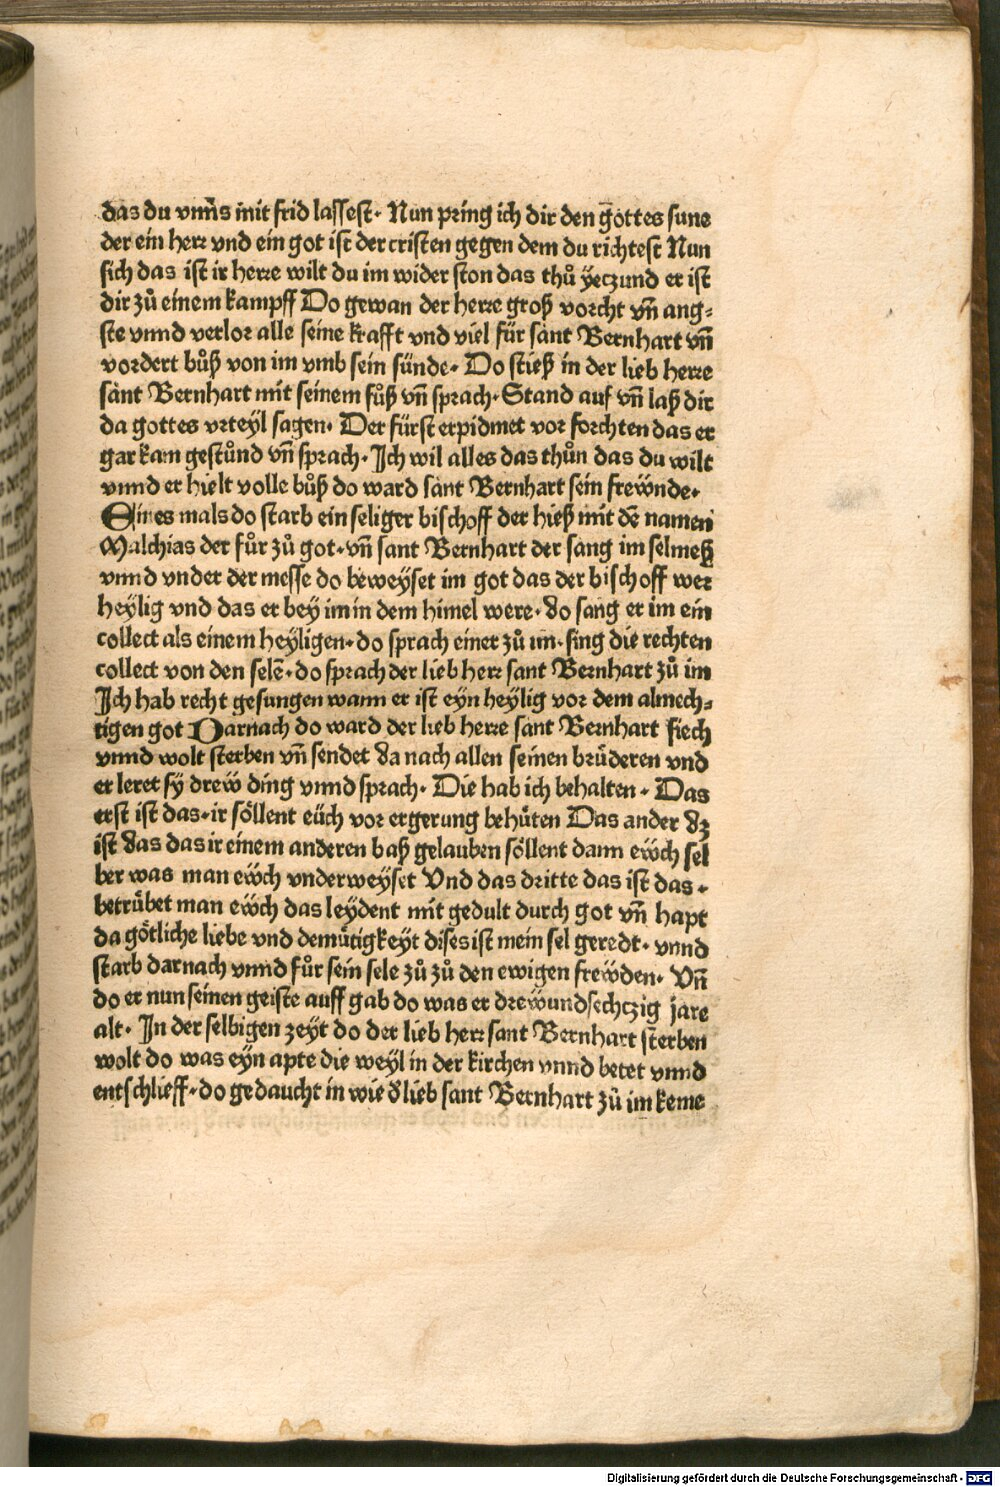 das du vnns mit frid lassest· Nun pring ich dir den gottes sune
der ein herr vnd ein got ist der cristen gegen dem du richtest Nun
sich das ist ir herre wilt du im wider ston das thů yeczund er ist
dir zů einem kampff Do gewan der herre groß vorcht vn̄ ang⸗
ste vnnd verlor alle seine krafft vnd viel für sant Bernhart vn̄
vordert bůß von im vmb sein sünde· Do stieß in der lieb herre
sant Bernhart mit seinem fůß vn̄ sprach· Stand auf vn̄ laß dir
da gottes vrteyl sagen· Der fürst erpidmet vor forchten das er
gar kam gestůnd vn̄ sprach· Ich wil alles das thůn das du wilt
vnnd er hielt volle bůß do ward sant Bernhart sein frewnde·
Eines mals do starb ein seliger bischoff der hieß mit dē namen
Malchias der fůr zů got· vn̄ sant Bernhart der sang im selmeß
vnnd vnder der messe do beweyset im got das der bischoff wer
heylig vnd das er bey im in dem himel were· do sang er im ein
collect als einem heyligen· do sprach einer zů im· sing die rechten
collect von den selē· do sprach der lieb herr sant Bernhart zů im
Ich hab recht gesungen wann er ist eyn heylig vor dem almech⸗
tigen got Darnach do ward der lieb herre sant Bernhart siech
vnnd wolt sterben vn̄ sendet da nach allen seinen brüderen vnd
er leret sy drew ding vnnd sprach· Die hab ich behalten· Das
erst ist das· ir söllent eüch vor ergerung behüten Das ander dz
ist das das ir einem anderen baß gelauben söllent dann ewch sel
ber was man ewch vnderweyset Vnd das dritte das ist das·
betrübet man ewch das leydent mit gedult durch got vn̄ hapt
da götliche liebe vnd demütigkeyt dises ist mein sel geredt· vnnd
starb darnach vnnd fůr sein sele zů zů den ewigen frewden· Vn̄
do er nun seinen geiste auff gab do was er drewundsechczig jare
alt· In der selbigen zeyt do der lieb herr sant Bernhart sterben
wolt do was eyn apte die weyl in der kirchen vnnd betet vnnd
entschlieff· do gedaucht in wie d̓ lieb sant Bernhart zů im keme
Digitalisierung gefördert durch die Deutsche Forschungsgemeinschaft - DFG